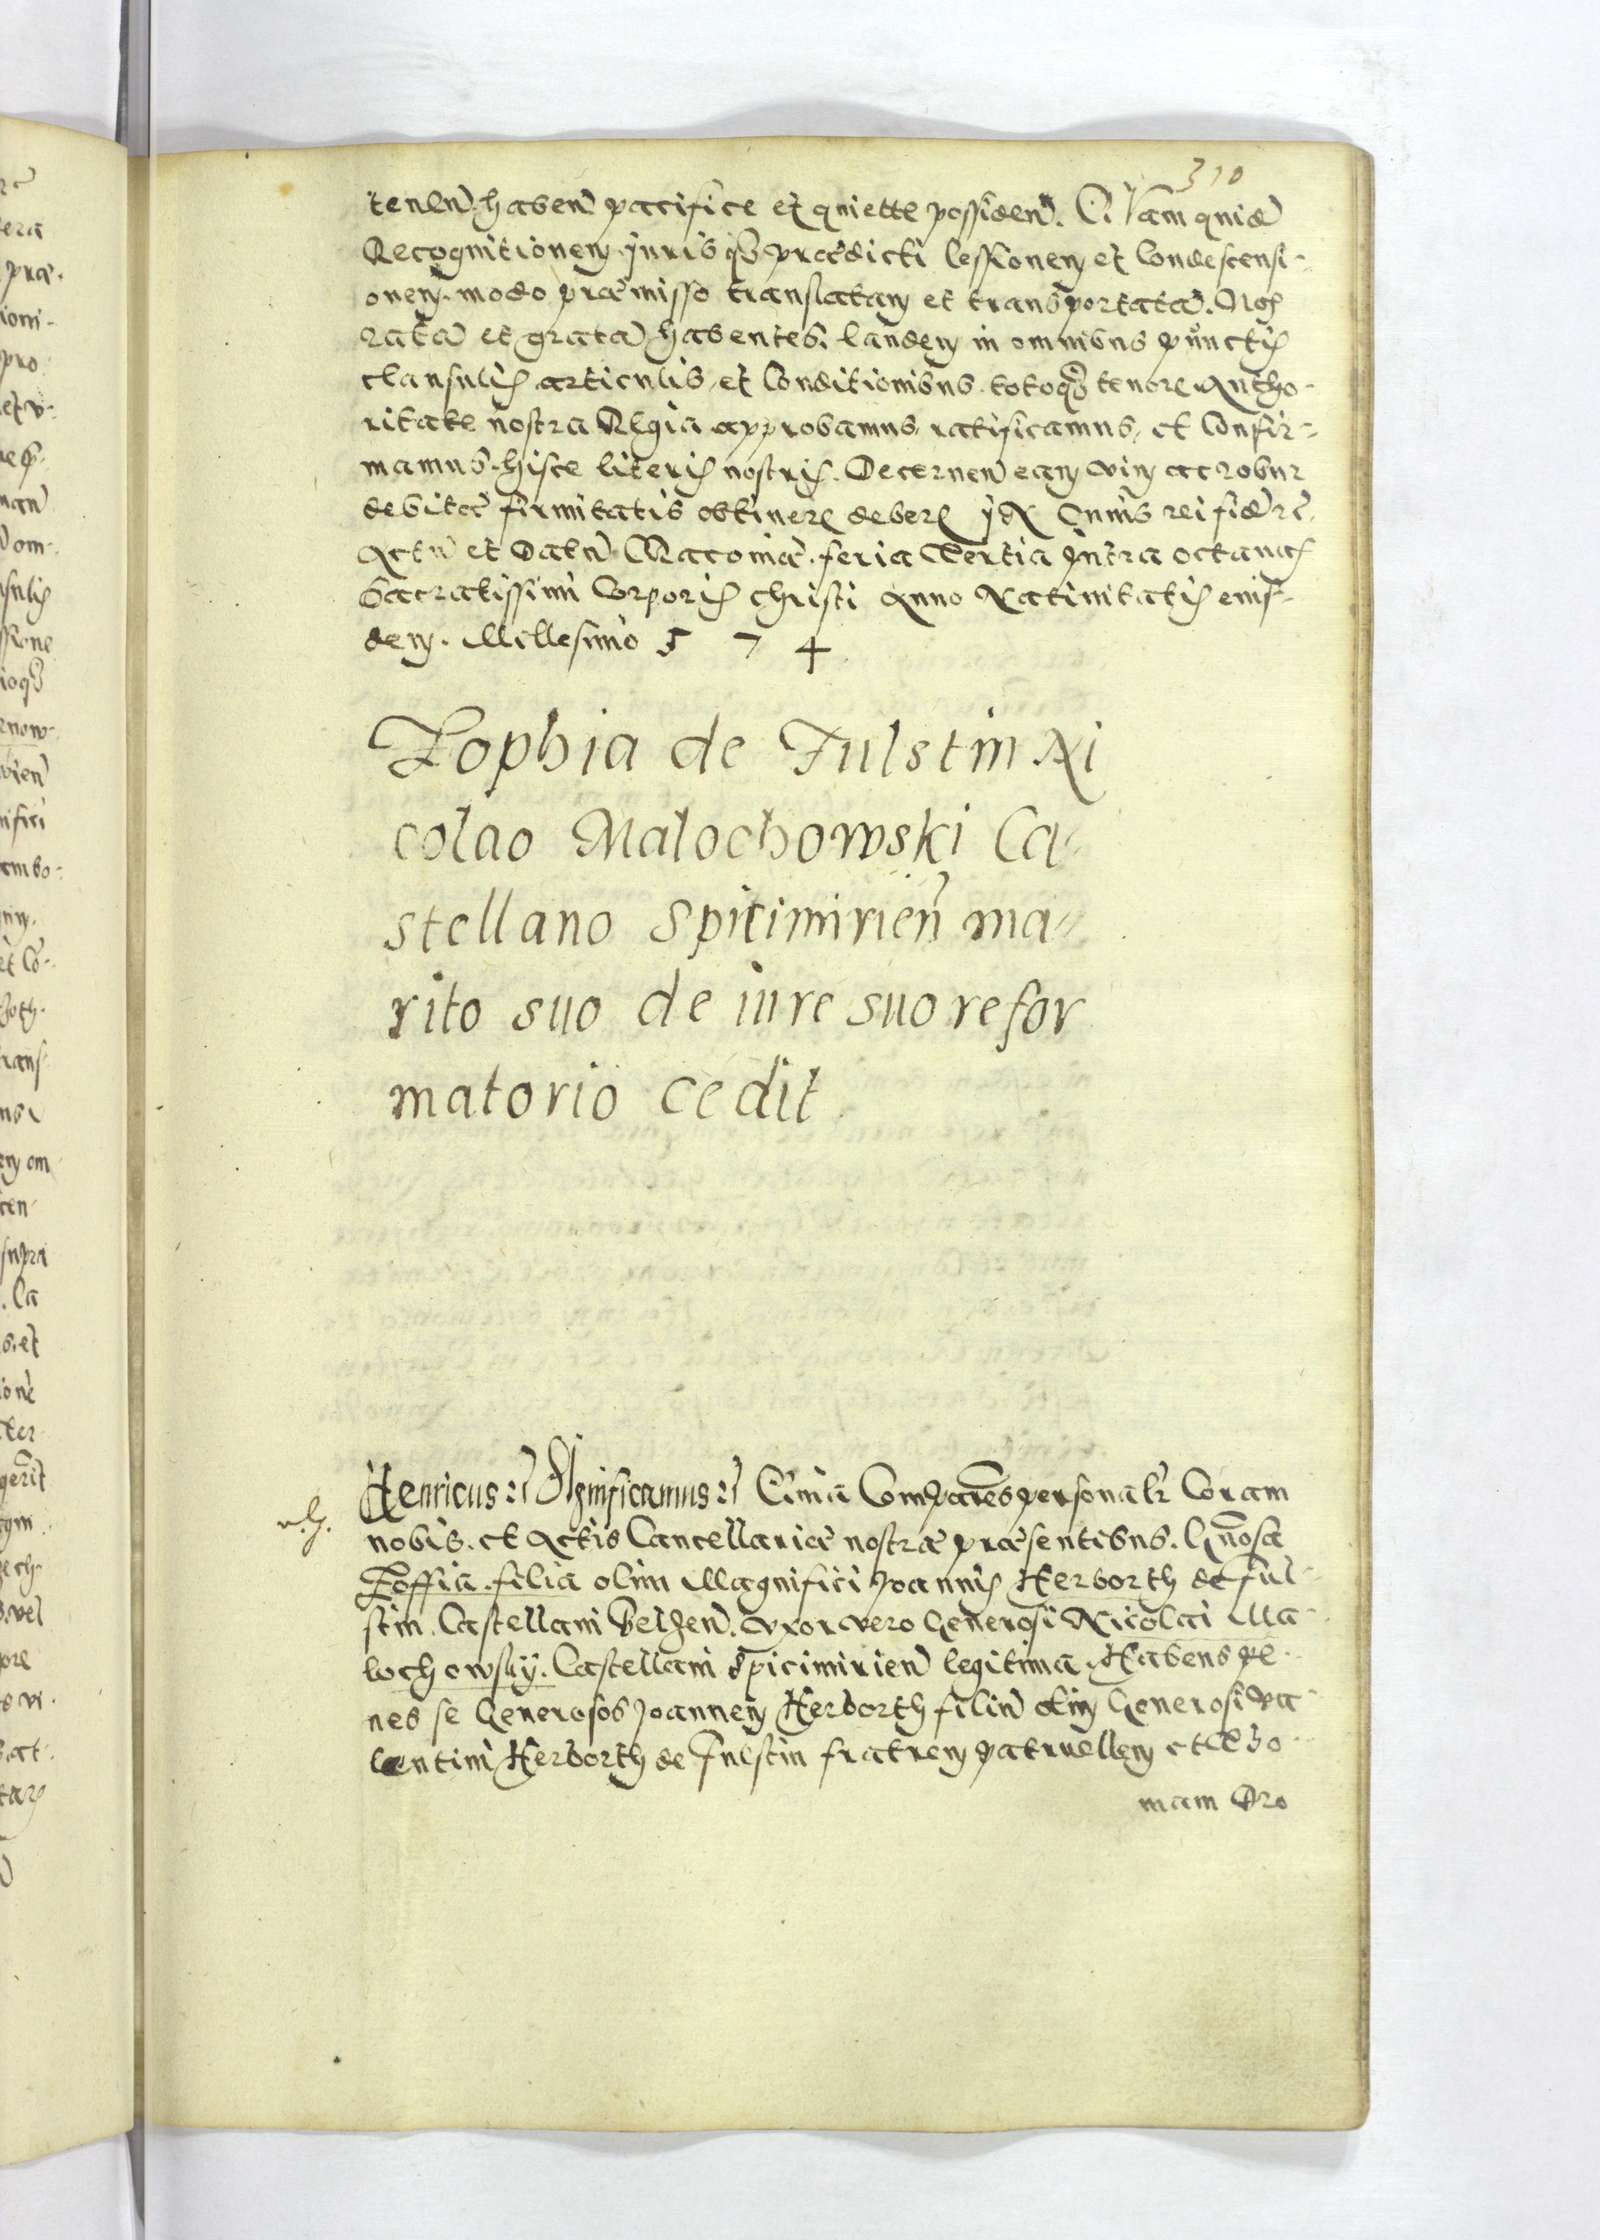 310
tenen haben pacifice et quiette possiden. quid
Recognitionem jurisqz praedicti Cessionem et Condescensi-
onem modo praemisso translatam et transportata. Nos
rata et grata habentes, eandem in omnibus punctis
clausulis articulis et Conditionibus totoqz tenore Autho-
ritate nostra Regia approbamus, ratificamus, et Confir-
mamus hisce literis nostris. Decernen eam vim ac robur
debitae firmitatis obtinere debere Cuius rei fide rc.
Actu et Datu Cracoviae feria tertia Intra octavas
Sacratissimi Corporis christi Anno Nativitatis eius-
dem. Millesimo 5 7 4
Zophia de Fulstin Ni
colao Malochowski Ca-
stellano Spicimirien ma-
rito suo de iure suo refor
matorio cedit
Henricus rc Significamus rc Quia Comparens personalr Coram
nobis et Actis Cancellariae nostrae praesentibus. Gnosa
Zoffia filia olim Magnifici Joannis Herborth de Ful-
stin Castellani Belzen. uxor vero Generosi Nicolai Ma-
lochowsky Castellani Spicimirien legitima. Habens pe-
nes se Generosos Joannem Herborth filiu olim Generosi Va-
lentini Herborth de Fulstin fratrem patruellem et Tho-
mam Oro